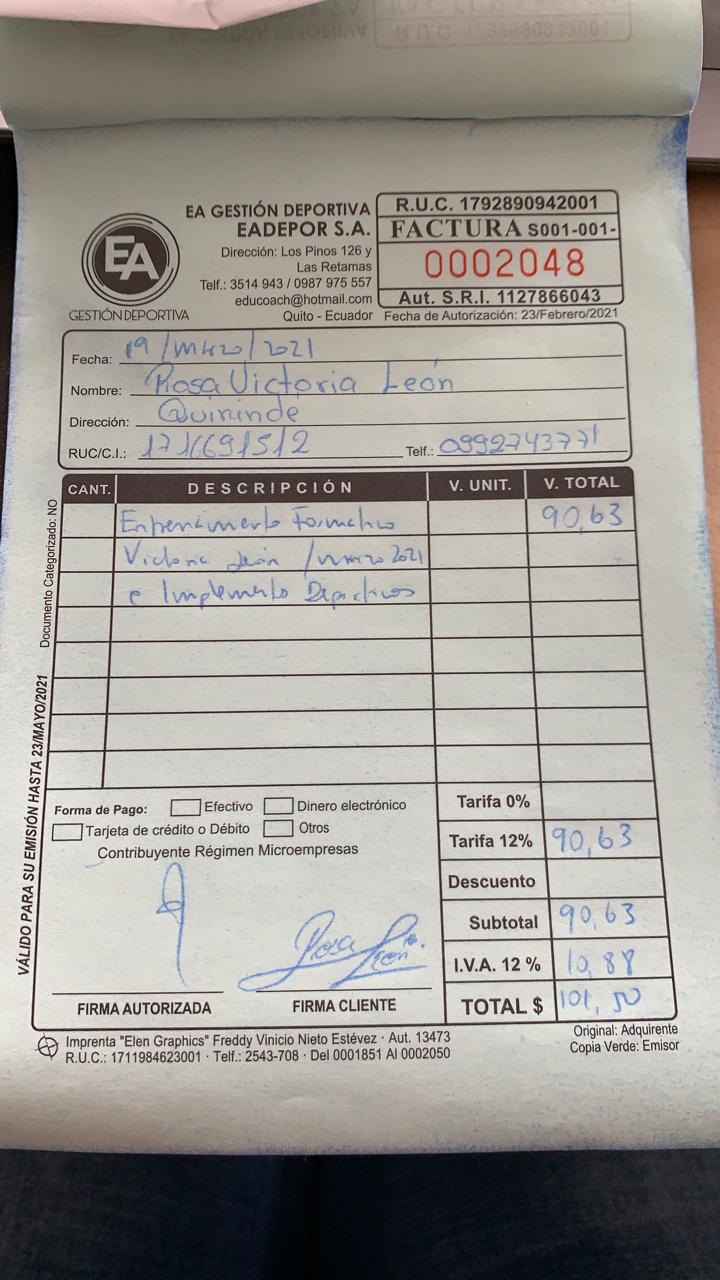 EA GESTIÓN DEPORTIVA
EADEPOR S.A.
Dirección: Los Pinos 126 y
Las Retamas
Telf.: 3514 943 / 0987 975 557
educoach@hotmail.com
Quito - Ecuador
EA
GESTIÓN DEPORTIVA
R.U.C. 1792890942001
FACTURA S001-001-
0002048
Aut. S.R.I. 1127866043
Fecha de Autorización: 23/Febrero/2021
Fecha: 19/marzo/2021
Nombre: Rosa Victoria León
Dirección: Quininde
RUC/C.I.: 1716691512 Telf.: 0992743771
CANT. DESCRIPCIÓN V. UNIT. V. TOTAL
Entrenamiento Formativo 90,63
Victoria León /marzo 2021
e Implemento Deportivos
Documento Categorizado: NO
VÁLIDO PARA SU EMISIÓN HASTA 23/MAYO/2021
Forma de Pago: Efectivo Dinero electrónico
Tarjeta de crédito o Débito Otros
Contribuyente Régimen Microempresas
Tarifa 0%
Tarifa 12% 90,63
Descuento
Subtotal 90,63
I.V.A. 12 % 10,88
TOTAL $ 101,50
Rosa León
FIRMA AUTORIZADA FIRMA CLIENTE
Imprenta "Elen Graphics" Freddy Vinicio Nieto Estévez · Aut. 13473
R.U.C.: 1711984623001 · Telf.: 2543-708 · Del 0001851 Al 0002050
Original: Adquirente
Copia Verde: Emisor